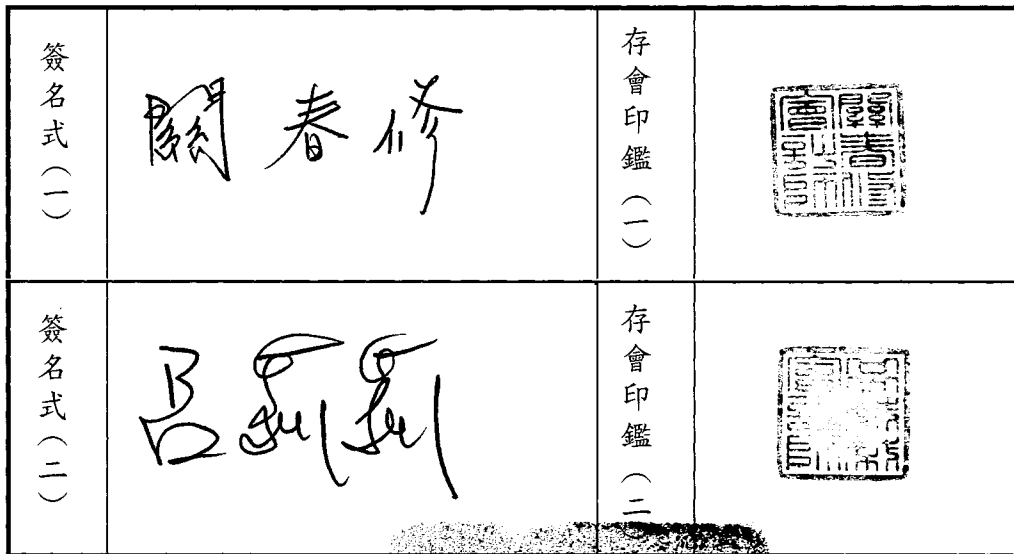 簽名式(一)
關春修
存會印鑑(一)
簽名式(二)
呂莉莉
存會印鑑(二